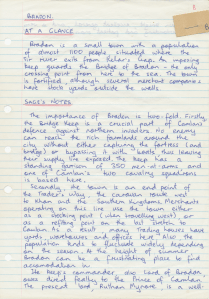 BRADON.
AT A GLANCE
Bradon is a small town with a population
of almost 1100 people situated where the
Sir river exits from Kelar's Gap. An imposing
keep guards the Bridge of Bradon - the only
crossing point from here to the sea. The town
is fortified, although several merchant companies
have stock yards outside the walls.
SAGE'S NOTES.
The importance of Bradon is two-fold. Firstly,
the Bridge Keep is a crucial part of Camlan's
defence against northern invaders. No enemy
can reach the rich farmland around the
city without either capturing the fortress (and
bridge) or bypassing it with boats thus leaving
their supply line exposed. The keep has a
standing garrison of 350 men-at-arms and
one of Camlan's two cavalry squadrons
is based here.
Secondly, the town is an end point of
the Trader's Way, the caravan route west
to Khan and the Southern Kingdoms. Merchants
operating on this line use the town either
as a stocking point (when travelling west) or
as a resting point on the last stretch to
Camlan. As a result many trading houses have
yards, warehouses and offices here. Also the
population tends to fluctuate widely depending
on the season. In the height of summer
Bradon can be a frustrating place to find
accommodation in.
The Keep's commander, also Lord of Bradon,
owes direct fealty to the Prince of Camlan.
The present lord, Pelham Mynors, is a well